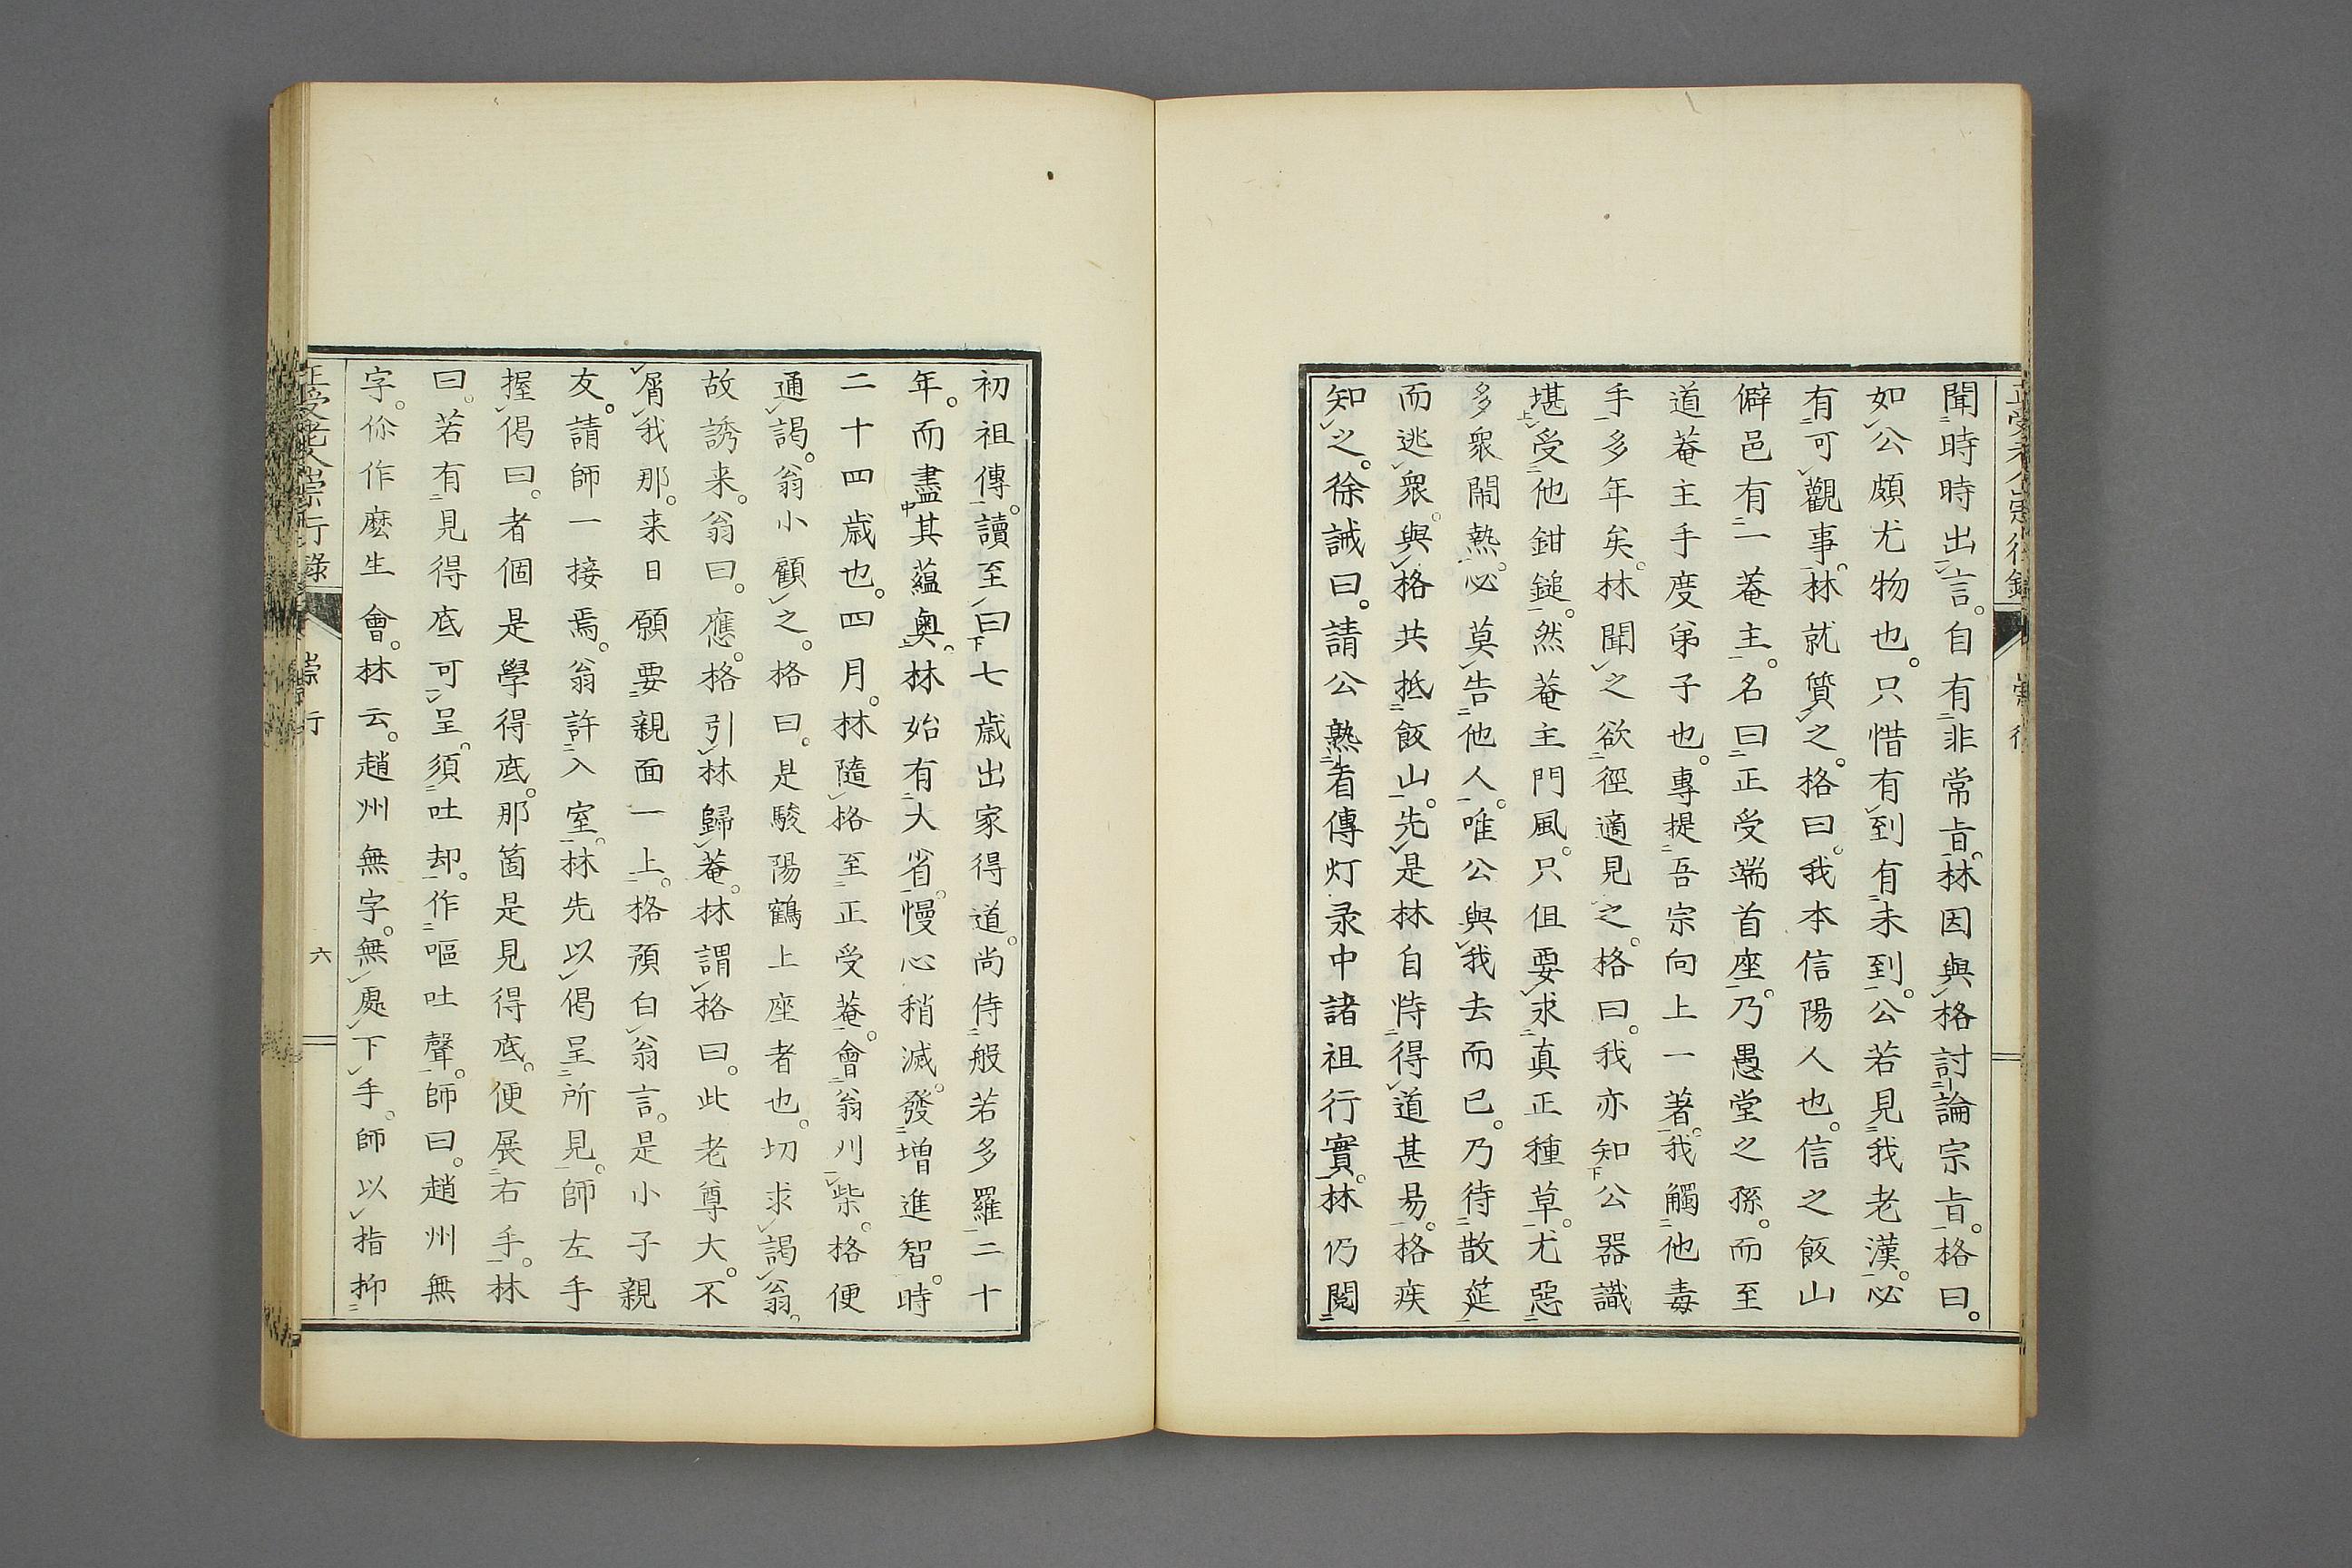 聞時時出言。自有非常旨。林因與格討論宗旨。格曰。
如公頗尤物也。只惜有到有未到。公若見我老漢。必
有可觀事。林就質之。格曰。我本信陽人也。信之飯山
僻邑有一菴主。名曰正受端首座。乃愚堂之孫。而至
道菴主手度弟子也。專提吾宗向上一著。我觸他毒
手多年矣。林聞之欲徑適見之。格曰。我亦知公器識
堪受他鉗鎚。然菴主門風。只但要求真正種草。尤惡
多衆鬧熱。必莫告他人。唯公與我去而已。乃待散筵
而逃衆。與格共抵飯山。先是林自恃得道甚易。格疾
知之。徐誡曰。請公熟看傳灯录中諸祖行實。林仍閲
初祖傳。讀至曰七歳出家得道。尚侍般若多羅二十
年。而盡其蘊奥。林始有大省。慢心稍減。發增進智。時
二十四歳也。四月。林隨格至正受菴。會翁刈柴。格便
通謁。翁小顧之。格曰。是駿陽鶴上座者也。切求謁翁。
故誘来。翁曰。應。格引林歸菴。林謂格曰。此老尊大。不
屑我那。来日願要親面一上。格預白翁言。是小子親
友。請師一接焉。翁許入室。林先以偈呈所見。師左手
握偈曰。者個是學得底。那箇是見得底。便展右手。林
曰。若有見得底可呈。須吐却。作嘔吐聲。師曰。趙州無
字。你作麼生會。林云。趙州無字。無處下手。師以指抑
正受老人崇行録
崇行
六